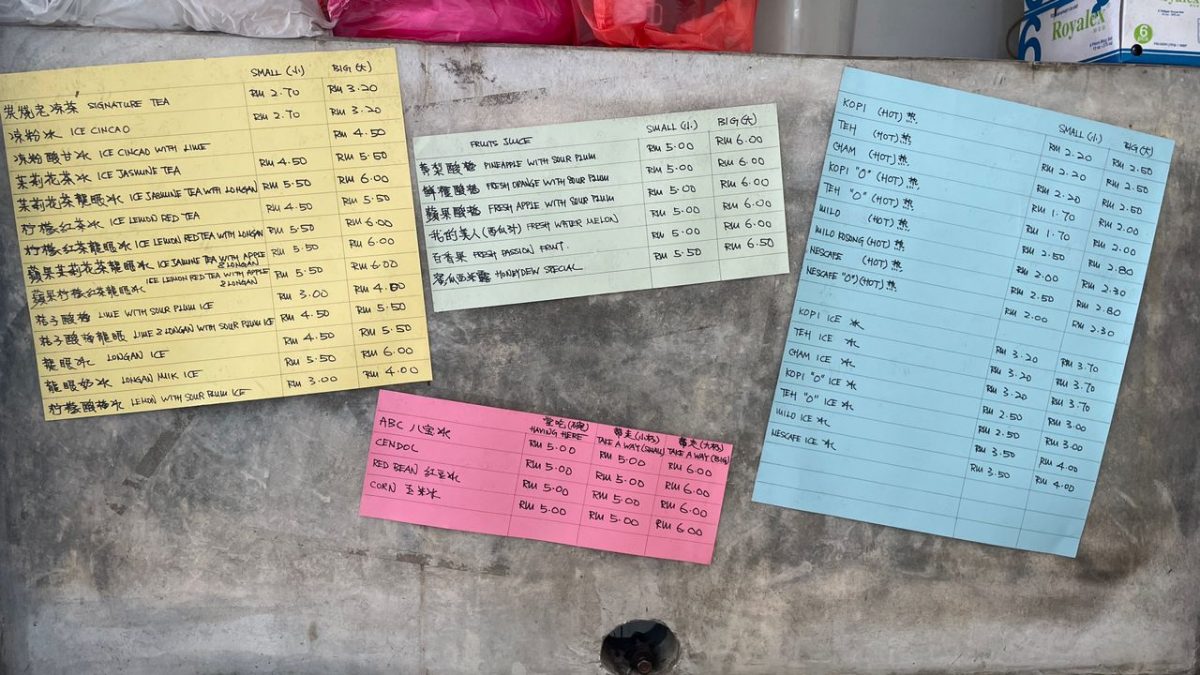 SMALL (小) BIG (大)
炭燒老凉茶 SIGNATURE TEA RM 2.70 RM 3.20
凉粉冰 ICE CINCAO RM 2.70 RM 3.20
凉粉酸甘冰 ICE CINCAO WITH LIME RM 4.50
茉莉花茶冰 ICE JASMINE TEA RM 4.50 RM 5.50
茉莉花茶龍眼冰 ICE JASMINE TEA WITH LONGAN RM 5.50 RM 6.00
柠檬红茶冰 ICE LEMON RED TEA RM 4.50 RM 5.50
柠檬红茶龍眼冰 ICE LEMON RED TEA WITH LONGAN RM 5.50 RM 6.00
蘋果茉莉花茶龍眼冰 ICE JASMINE TEA WITH APPLE & LONGAN RM 5.50 RM 6.00
蘋果柠檬红茶龍眼冰 ICE LEMON RED TEA WITH APPLE & LONGAN RM 5.50 RM 6.00
桔子酸梅 LIME WITH SOUR PLUM ICE RM 3.00 RM 4.00
桔子酸梅龍眼 LIME & LONGAN WITH SOUR PLUM ICE RM 4.50 RM 5.50
龍眼冰 LONGAN ICE RM 4.50 RM 5.50
龍眼奶冰 LONGAN MIK ICE RM 5.50 RM 6.00
柠檬酸梅冰 LEMON WITH SOUR PLUM ICE RM 3.00 RM 4.00
FRUITS JUICE SMALL (小) BIG (大)
黄梨酸梅 PINEAPPLE WITH SOUR PLUM RM 5.00 RM 6.00
鮮橙酸梅 FRESH ORANGE WITH SOUR PLUM RM 5.00 RM 6.00
蘋果酸梅 FRESH APPLE WITH SOUR PLUM RM 5.00 RM 6.00
我的美人(西瓜汁) FRESH WATER MELON RM 5.00 RM 6.00
百香果 FRESH PASSION FRUIT. RM 5.00 RM 6.00
蜜瓜西米露 HONEYDEW SPECIAL RM 5.50 RM 6.50
堂吃(碗) HAVING HERE 帶走(小杯) TAKE A WAY (SMALL) 帶走(大杯) TAKE A WAY (BIG)
ABC 八宝冰 RM 5.00 RM 5.00 RM 6.00
CENDOL RM 5.00 RM 5.00 RM 6.00
RED BEAN 紅豆冰 RM 5.00 RM 5.00 RM 6.00
CORN 玉米冰 RM 5.00 RM 5.00 RM 6.00
SMALL (小) BIG (大)
KOPI (HOT) 热 RM 2.20 RM 2.50
TEH (HOT) 热 RM 2.20 RM 2.50
CHAM (HOT) 热 RM 2.20 RM 2.50
KOPI "O" (HOT) 热 RM 1.70 RM 2.00
TEH "O" (HOT) 热 RM 1.70 RM 2.00
MILO (HOT) 热 RM 2.50 RM 2.80
MILO KOSONG (HOT) 热 RM 2.00 RM 2.30
NESCAFE (HOT) 热 RM 2.50 RM 2.80
NESCAFE "O" (HOT) 热 RM 2.00 RM 2.30
KOPI ICE 冰 RM 3.20 RM 3.70
TEH ICE 冰 RM 3.20 RM 3.70
CHAM ICE 冰 RM 3.20 RM 3.70
KOPI "O" ICE 冰 RM 2.50 RM 3.00
TEH "O" ICE 冰 RM 2.50 RM 3.00
MILO ICE 冰 RM 3.50 RM 4.00
NESCAFE ICE 冰 RM 3.50 RM 4.00
Royalex
6